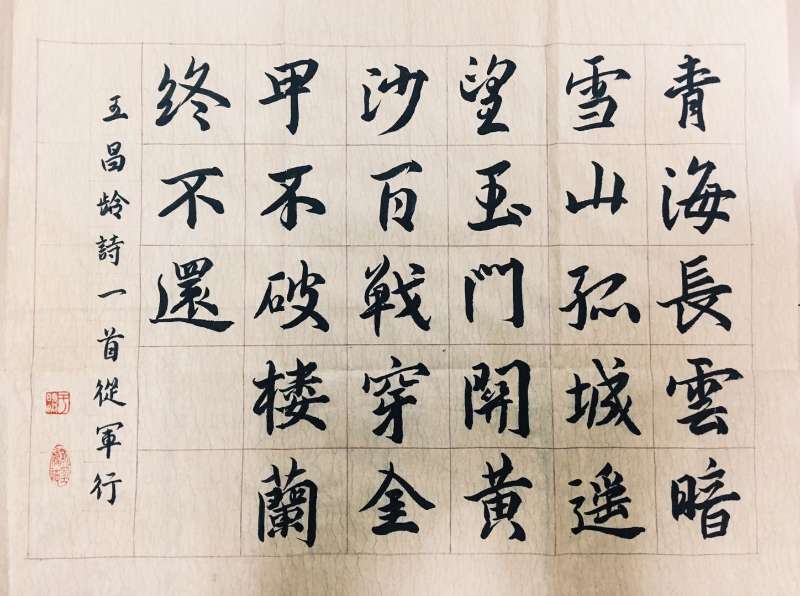 青海長雲暗
雪山孤城遥
望玉門開黄
沙百戰穿金
甲不破楼蘭
終不還
王昌龄詩一首從軍行